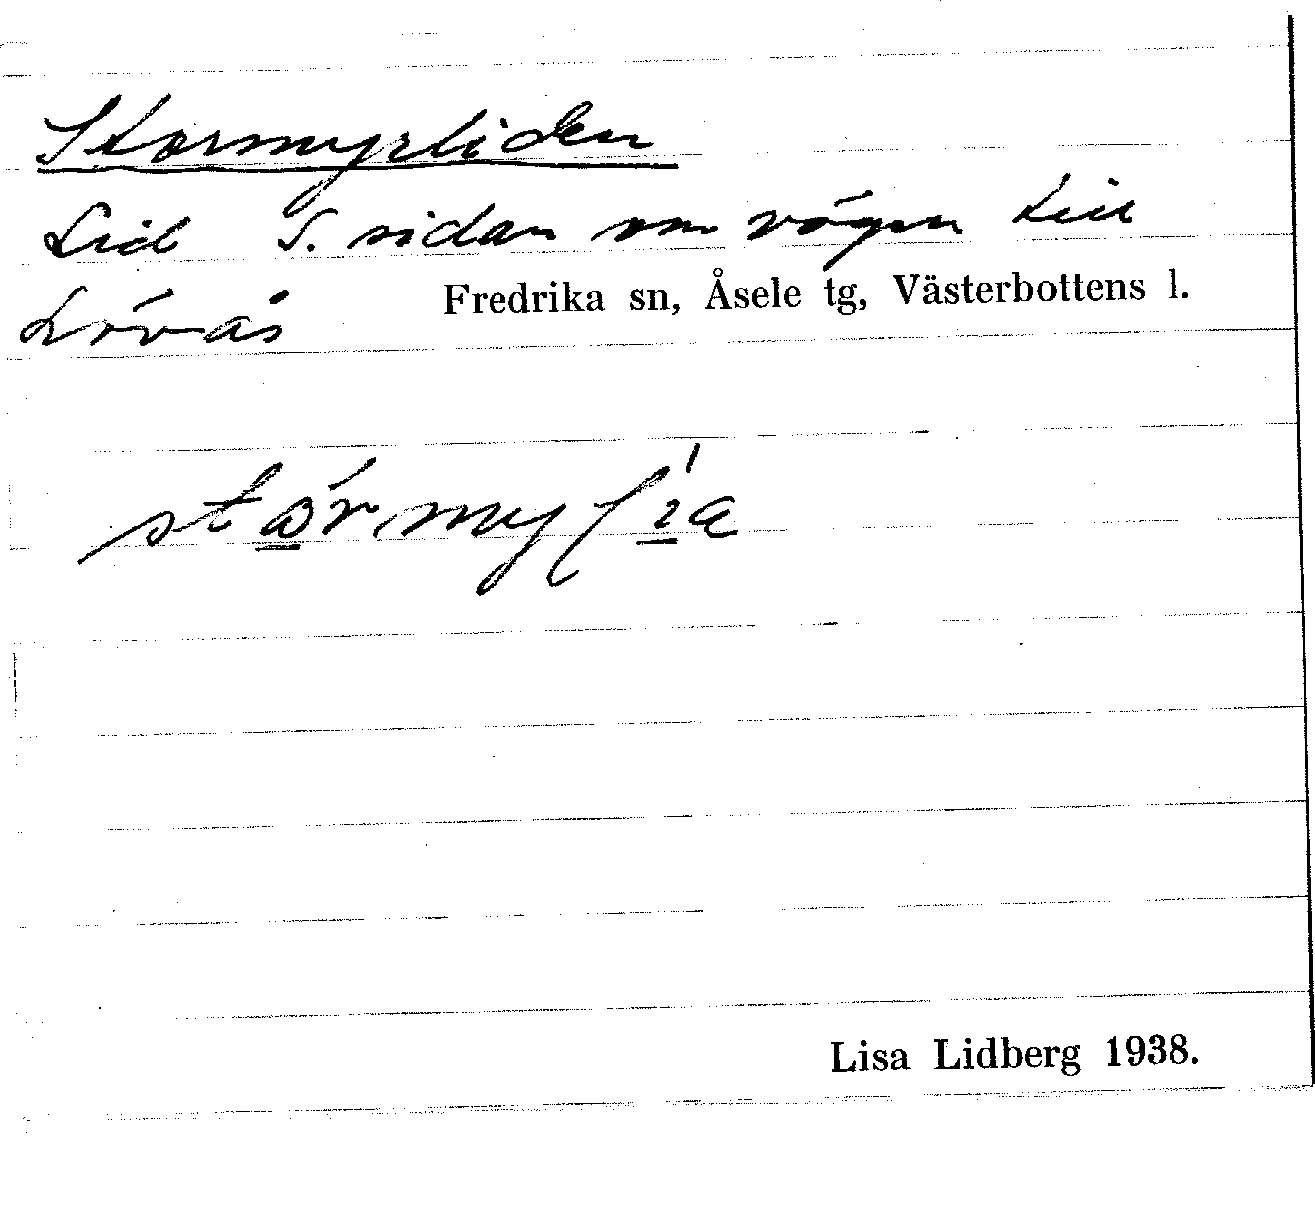 Stormyrliden
Lid S. sidan om vägen till
Lövås
Fredrika sn, Åsele tg, Västerbottens l.
Lisa Lidberg 1938.